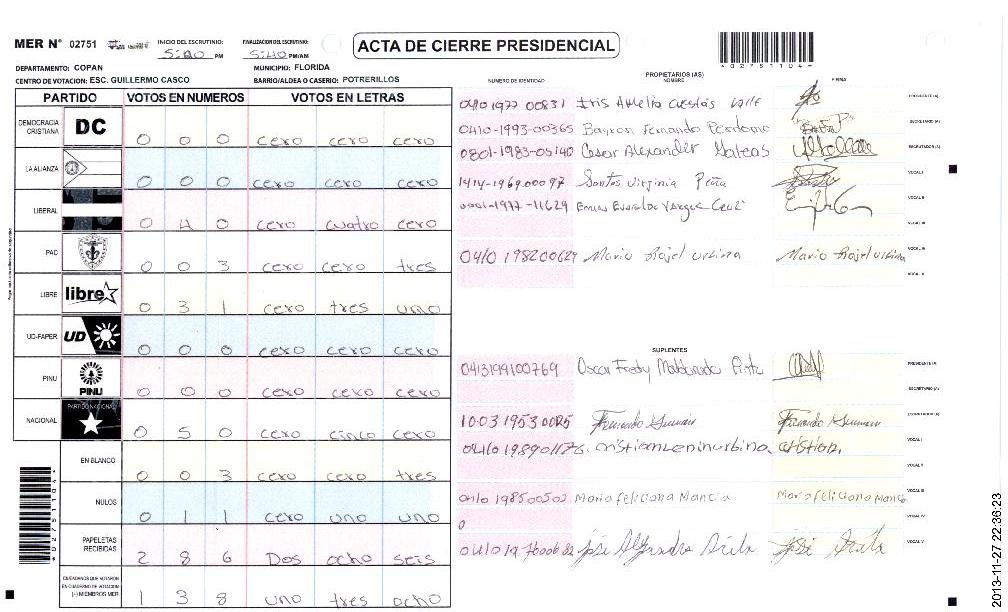 MER N° 02751
INICIO DEL ESCRUTINIO: PM
FINALIZACION DEL ESCRUTINIO: 5:40 PM/AM
ACTA DE CIERRE PRESIDENCIAL
4027511044
DEPARTAMENTO: COPAN
MUNICIPIO: FLORIDA
CENTRO DE VOTACION: ESC. GUILLERMO CASCO
BARRIO/ALDEA O CASERIO: POTRERILLOS
PARTIDO VOTOS EN NUMEROS VOTOS EN LETRAS
DEMOCRACIA CRISTIANA DC 0 0 0 cero cero cero
LA ALIANZA 0 0 0 cero cero cero
LIBERAL 0 4 0 cero cuatro cero
PAC 0 0 3 cero cero tres
LIBRE libre 0 3 1 cero tres uno
UD-FAPER UD 0 0 0 cero cero cero
PINU PINU 0 0 0 cero cero cero
NACIONAL PARTIDO NACIONAL 0 5 0 cero cinco cero
EN BLANCO 0 0 3 cero cero tres
NULOS 0 1 1 cero uno uno
PAPELETAS RECIBIDAS 2 8 6 Dos ocho seis
CIUDADANOS QUE VOTARON EN CUADERNO DE VOTACION (-) MIEMBROS MER 1 3 8 uno tres ocho
NUMERO DE IDENTIDAD
PROPIETARIOS (AS)
NOMBRE
FIRMA
0401 1977 00831 Iris Amelia PRESIDENTE (A)
0410-1993-00365 Bayron Fernando Perdomo SECRETARIO (A)
0801-1983-05140 Cesar Alexander Mateas ESCRUTADOR (A)
1414-1969 00097 Santos Virginia Peña VOCAL I
-1977-11629 VOCAL II
VOCAL III
0410 198200629 Mario Rojel Urbina Mario Rojel Urbina VOCAL IV
VOCAL V
SUPLENTES
0413199100769 Oscar Fredy Maldonado Pinto PRESIDENTE (A)
SECRETARIO (A)
1003 1953 Fernando Guzman Fernando Guzman ESCRUTADOR (A)
0410 cristian Lenin urbina cristian. VOCAL I
VOCAL II
0410 198500502 Maria feliciana Mancia Maria feliciana Mancia VOCAL III
0 VOCAL IV
José José VOCAL V
4027511044
2013-11-27 22:36:23